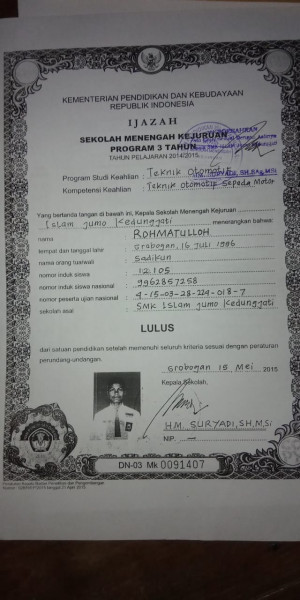 KEMENTERIAN PENDIDIKAN DAN KEBUDAYAAN
REPUBLIK INDONESIA
IJAZAH
SEKOLAH MENENGAH KEJURUAN
PROGRAM 3 TAHUN
TAHUN PELAJARAN 2014/2015
Program Studi Keahlian : Teknik Otomotif
Kompetensi Keahlian : Teknik Otomotif Sepeda Motor
Yang bertanda tangan di bawah ini, Kepala Sekolah Menengah Kejuruan
Islam Jumo Kedungjati menerangkan bahwa:
nama : ROHMATULLOH
tempat dan tanggal lahir : Grobogan, 16 Juli 1996
nama orang tua/wali : Sadikun
nomor induk siswa : 12.105
nomor induk siswa nasional : 9962857258
nomor peserta ujian nasional : 4-15-03-28-224-018-7
sekolah asal : SMK Islam Jumo Kedungjati
LULUS
dari satuan pendidikan setelah memenuhi seluruh kriteria sesuai dengan peraturan
perundang-undangan.
Grobogan 15 Mei 2015
Kepala Sekolah,
H.M. SURYADI, S.H, M.Si
NIP. —
DN-03 Mk 0091407